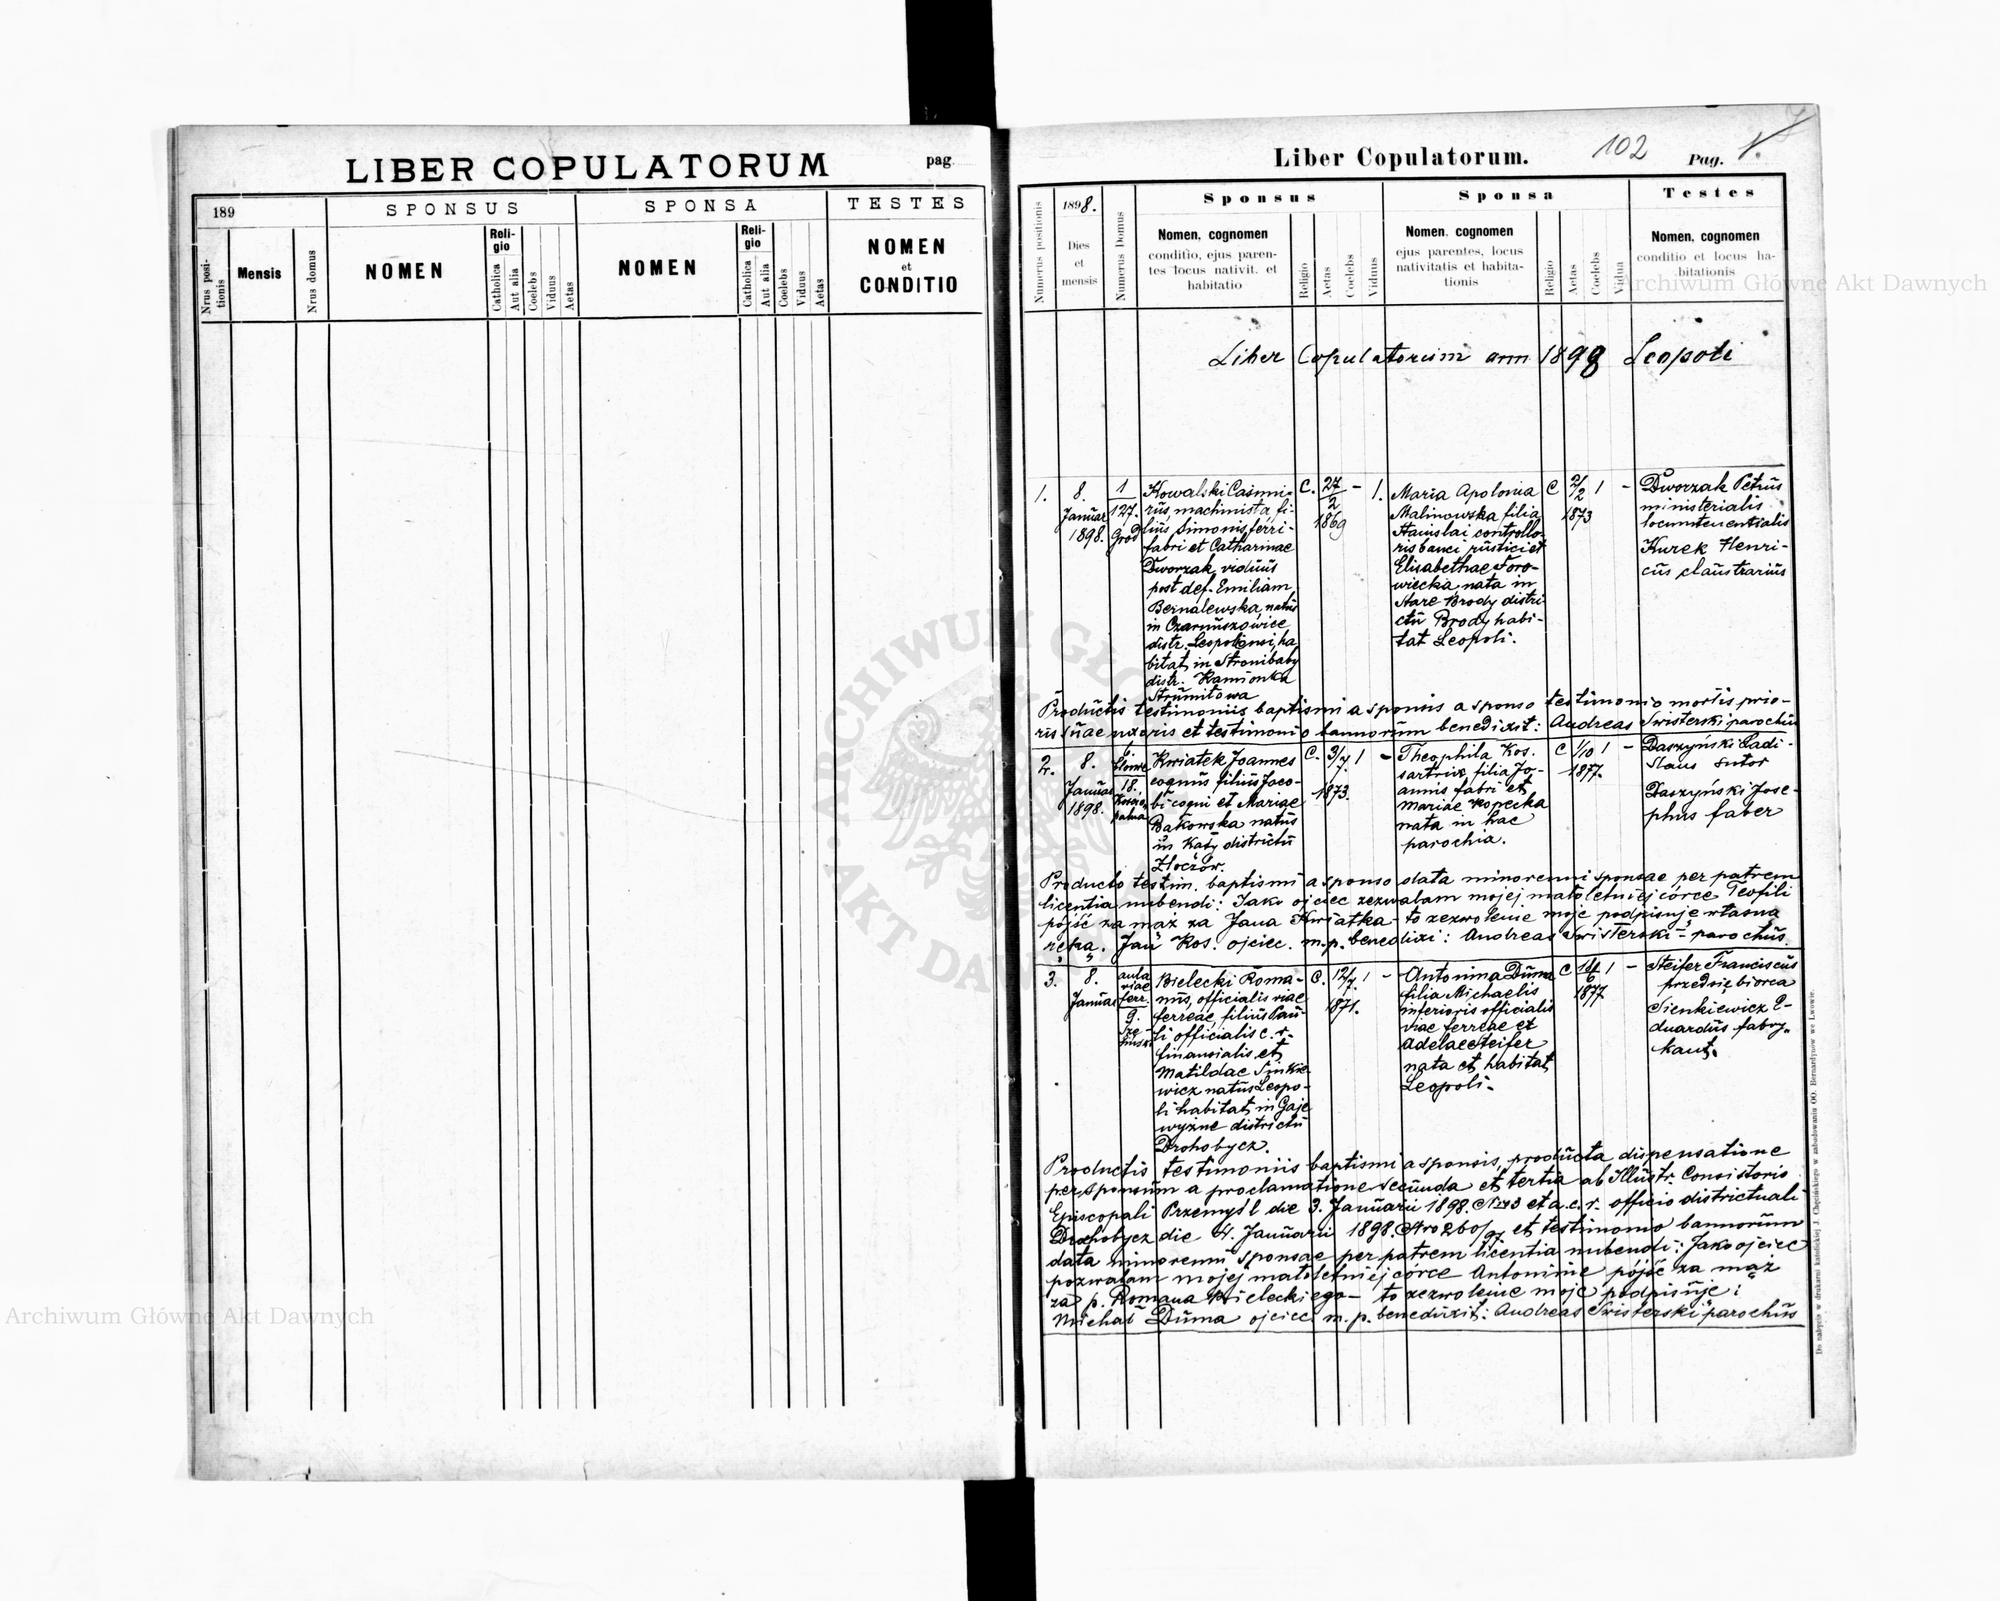 LIBER COPULATORUM
pag.
189
SPONSUS
SPONSA
TESTES
Nrus posi-
tionis
Mensis
Nrus domus
NOMEN
Reli-
gio
Catholica
Aut alia
Coelebs
Viduus
Aetas
NOMEN
Reli-
gio
Catholica
Aut alia
Coelebs
Viduus
Aetas
NOMEN
et
CONDITIO
Liber Copulatorum.
102
Pag. 1.
Numerus positionis
1898.
Dies
et
mensis
Numerus Domus
Sponsus
Nomen, cognomen
conditio, ejus paren-
tes locus nativit. et
habitatio
Religio
Aetas
Coelebs
Viduus
Sponsa
Nomen, cognomen
ejus parentes, locus
nativitatis et habita-
tionis
Religio
Aetas
Coelebs
Vidua
Testes
Nomen, cognomen
conditio et locus ha-
bitationis
Liber Copulatorum ann 1898 Leopoli
1.
8.
Januar
1898.
1
127.
Grod
Kowalski Casimi-
rus machinista, fi-
lius Simonis ferri-
fabri et Catharinae
Dworzak, viduus
post def. Emiliam
Bernalewska, natus
in Czarnuszowice
distr. Leopoliensi, ha
bitat in Stronibaby
distr. Kamionka
Strumiłowa
C.
27
2
1869
-
1.
Maria Apolonia
Malinowska filia
Stanislai controllo-
ris banci rustici et
Elisabethae Toro-
wiecka, nata in
Stare Brody distri-
ctu Brody habi-
tat Leopoli.
C
2/2
1873
1
-
Dworzak Petrus
ministerialis
locumtenentialis
Kurek Henri-
cus claustrarius
Productis testimoniis baptismi a sponsis a sponso testimonio mortis prio-
ris suae uxoris et testimonio bannorum benedixit: Andreas Swisterski parochus
2.
8.
Januar
1898.
6.
18.
Kwiatek Joannes
coquus filius Jaco-
bi coqui et Mariae
Bąkowska natus
in Kąty districtu
Złoczów.
C.
3/7
1873.
1
-
Theophila Kos.
sartrix filia Jo-
annis fabri et
Mariae Kopecka
nata in hac
parochia.
C
1/10
1877.
1
-
Daszyński Ladi-
slaus sutor
Daszyński Jose-
phus faber
Producto testim. baptismi a sponso data minorenni sponsae per patrem
licentia nubendi: Jako ojciec zezwalam mojej małoletniej córce Teofili
pójść za mąż za Jana Kwiatka - to zezwolenie moje podpisuję własną
ręką. Jan Kos. ojciec. m.p. benedixi: Andreas Swisterski - parochus.
3.
8.
Januar
aula
viae
ferr.
9.
Bielecki Roma-
nus, officialis viae
ferreae, filius Pau-
li officialis c. r.
financialis et
Matildae Sinkie-
wicz natus Leopo-
li habitat in Gaje
wyżne districtu
Drohobycz.
C.
12/7
1871.
1
-
Antonina Duma
filia Michaelis
inferioris officialis
viae ferreae et
Adelae Steifer
nata et habitat
Leopoli.
C
1877
1
-
Steifer Franciscus
przedsiębiorca
Sienkiewicz E-
duardus fabry-
kant.
Productis testimoniis baptismi a sponsis, producta dispensatione
per sponsum a proclamatione secunda et tertia ab Illustr. Consistorio
Episcopali Przemyśl die 3. Januarii 1898. et a c. r. officio districtuali
Drohobycz die 4. Januarii 1898. et testimonio bannorum
data minorenni sponsae per patrem licentia nubendi: Jako ojciec
pozwalam mojej małoletniej córce Antoninie pójść za mąż
za p. Romana Bieleckiego - to zezwolenie moje podpisuję:
Michał Duma ojciec m. p. benedixit: Andreas Swisterski parochus
Do nabycia w drukarni katolickiej J. Chęcińskiego w zabudowaniu OO. Bernardynów we Lwowie.
Archiwum Główne Akt Dawnych
Archiwum Główne Akt Dawnych
ARCHIWUM GŁÓWNE AKT DAWNYCH